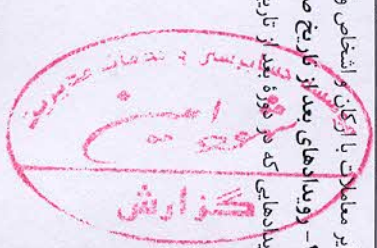 یر معاملات با ارکان و اشخاص و
- رویدادهای بعد از تاریخ ص
دادهایی که در دورهٔ بعد از تاری
حسابرسی و خدمات مدیریت
امین
گزارش